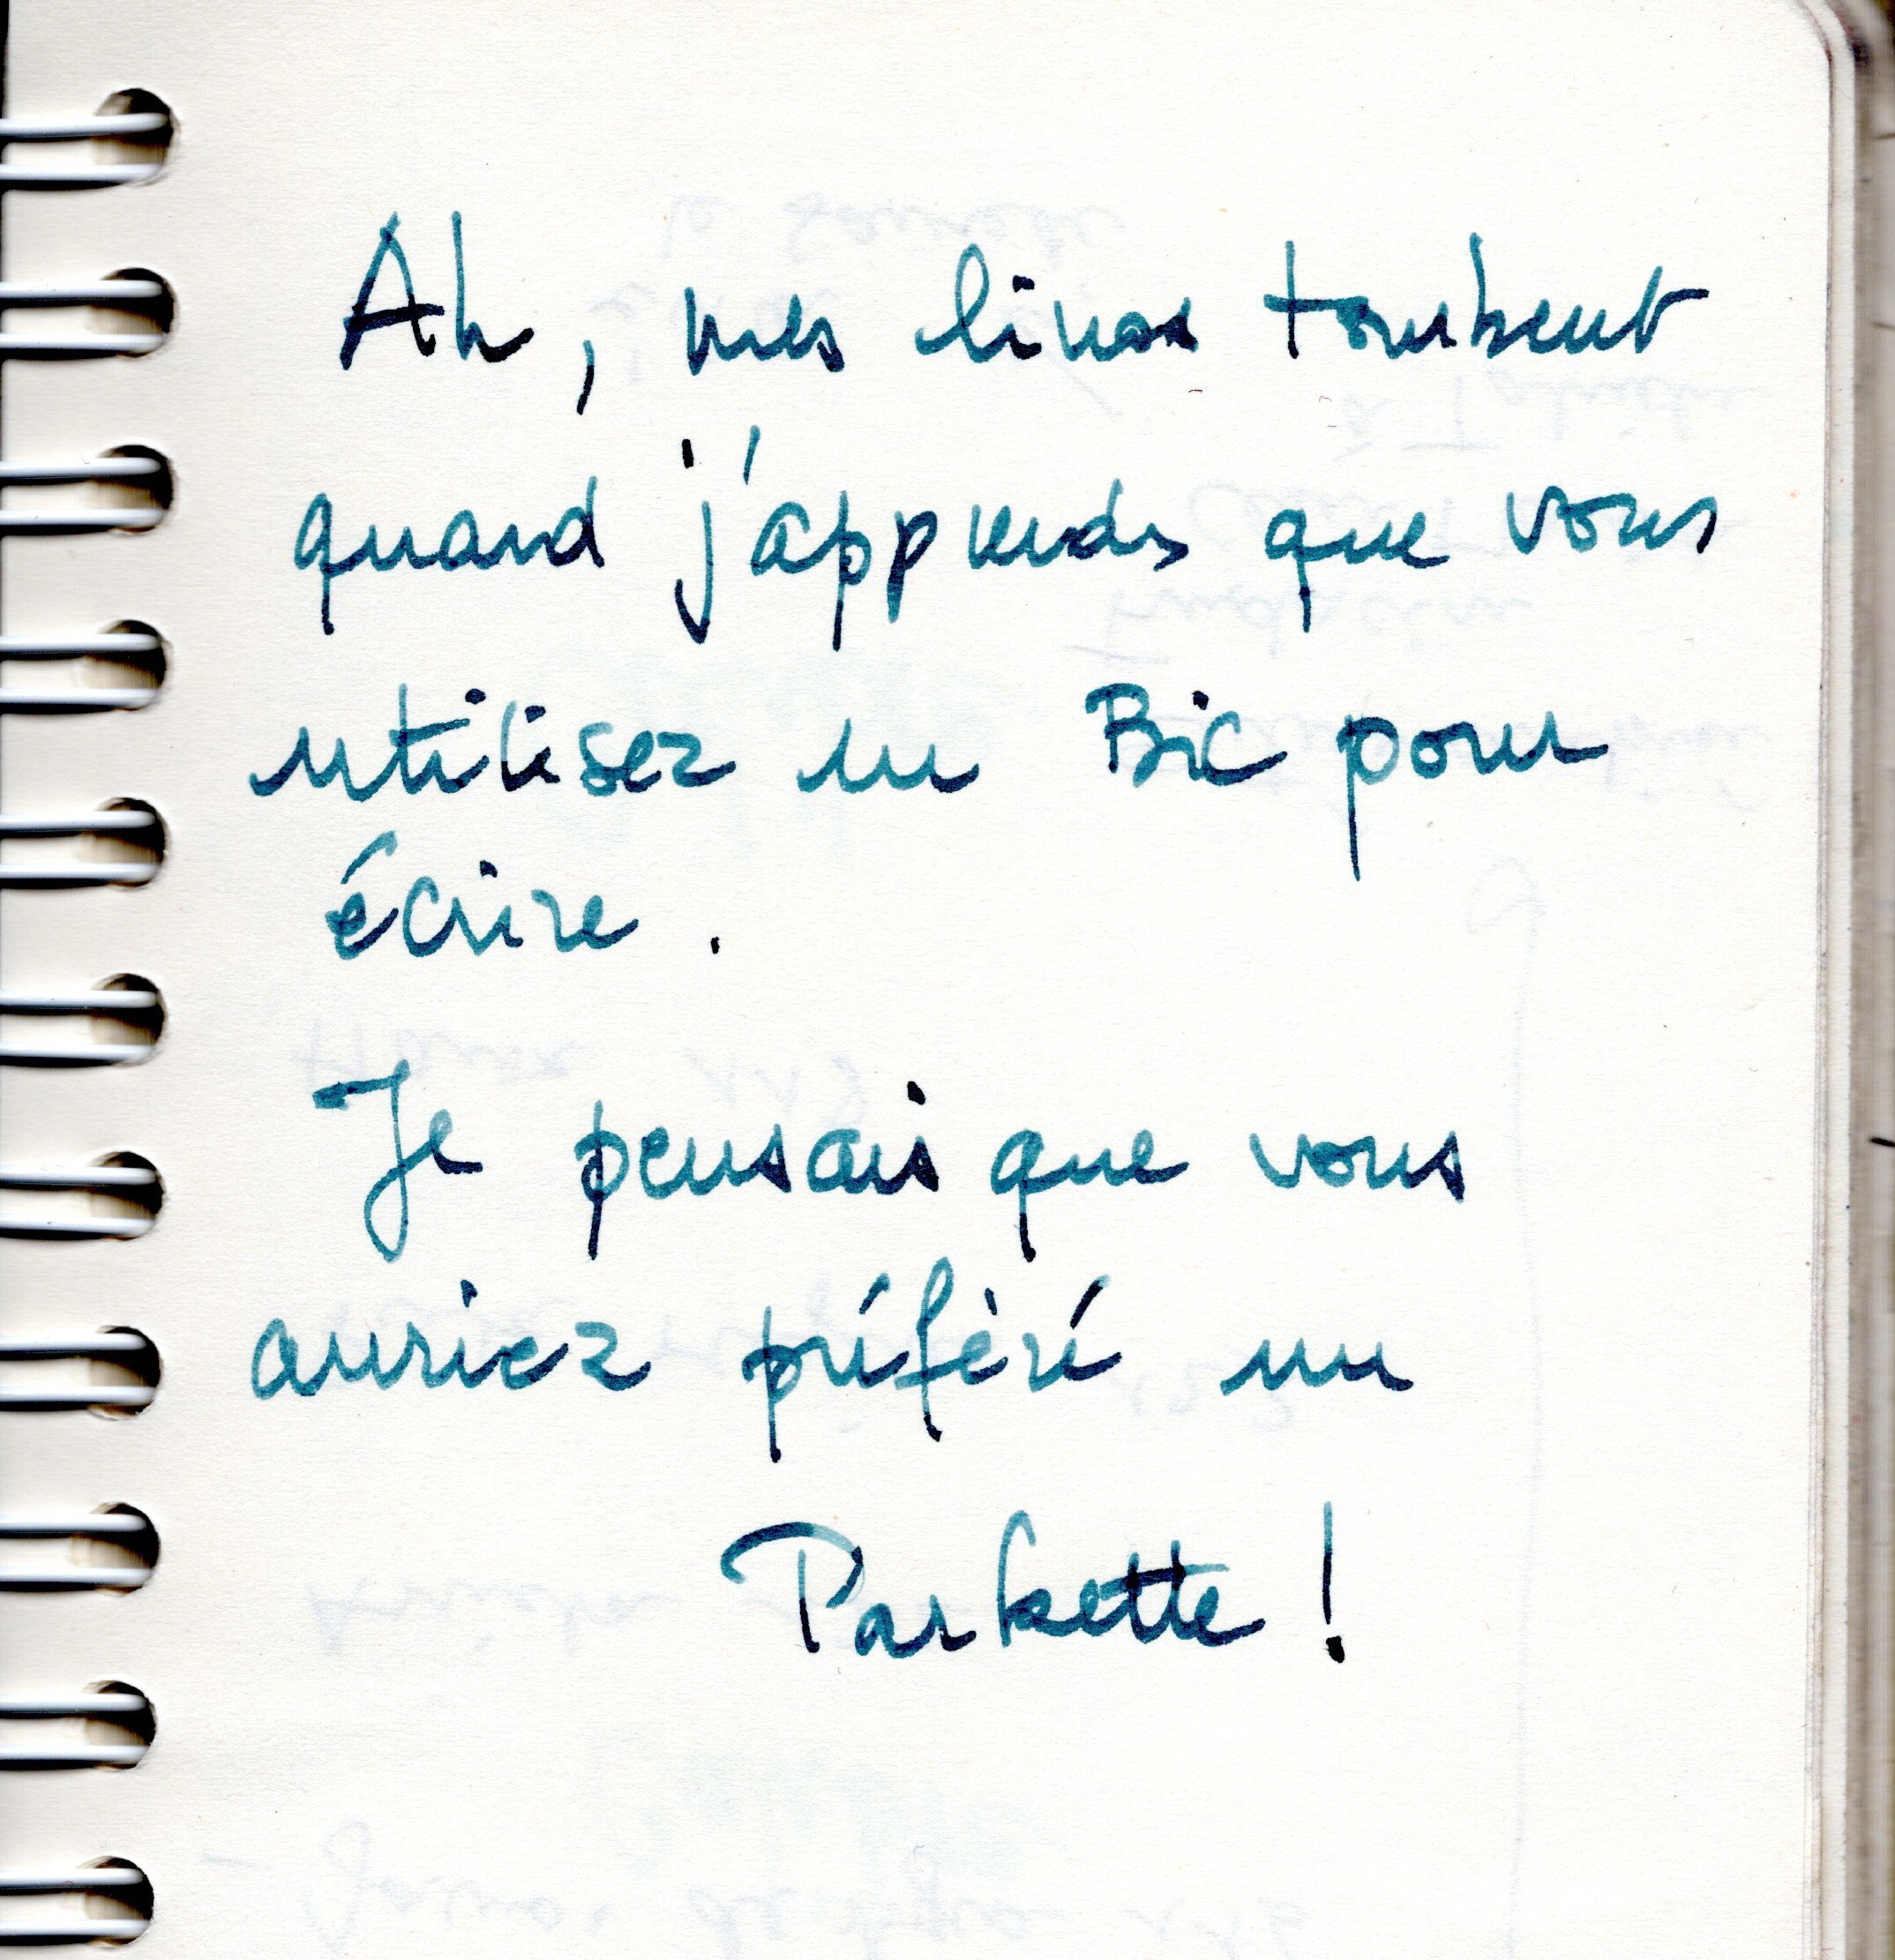 Ah, mes livres tombent
quand j'apprends que vous
utilisez un Bic pour
écrire.
Je pensais que vous
auriez préféré un
Parkette !